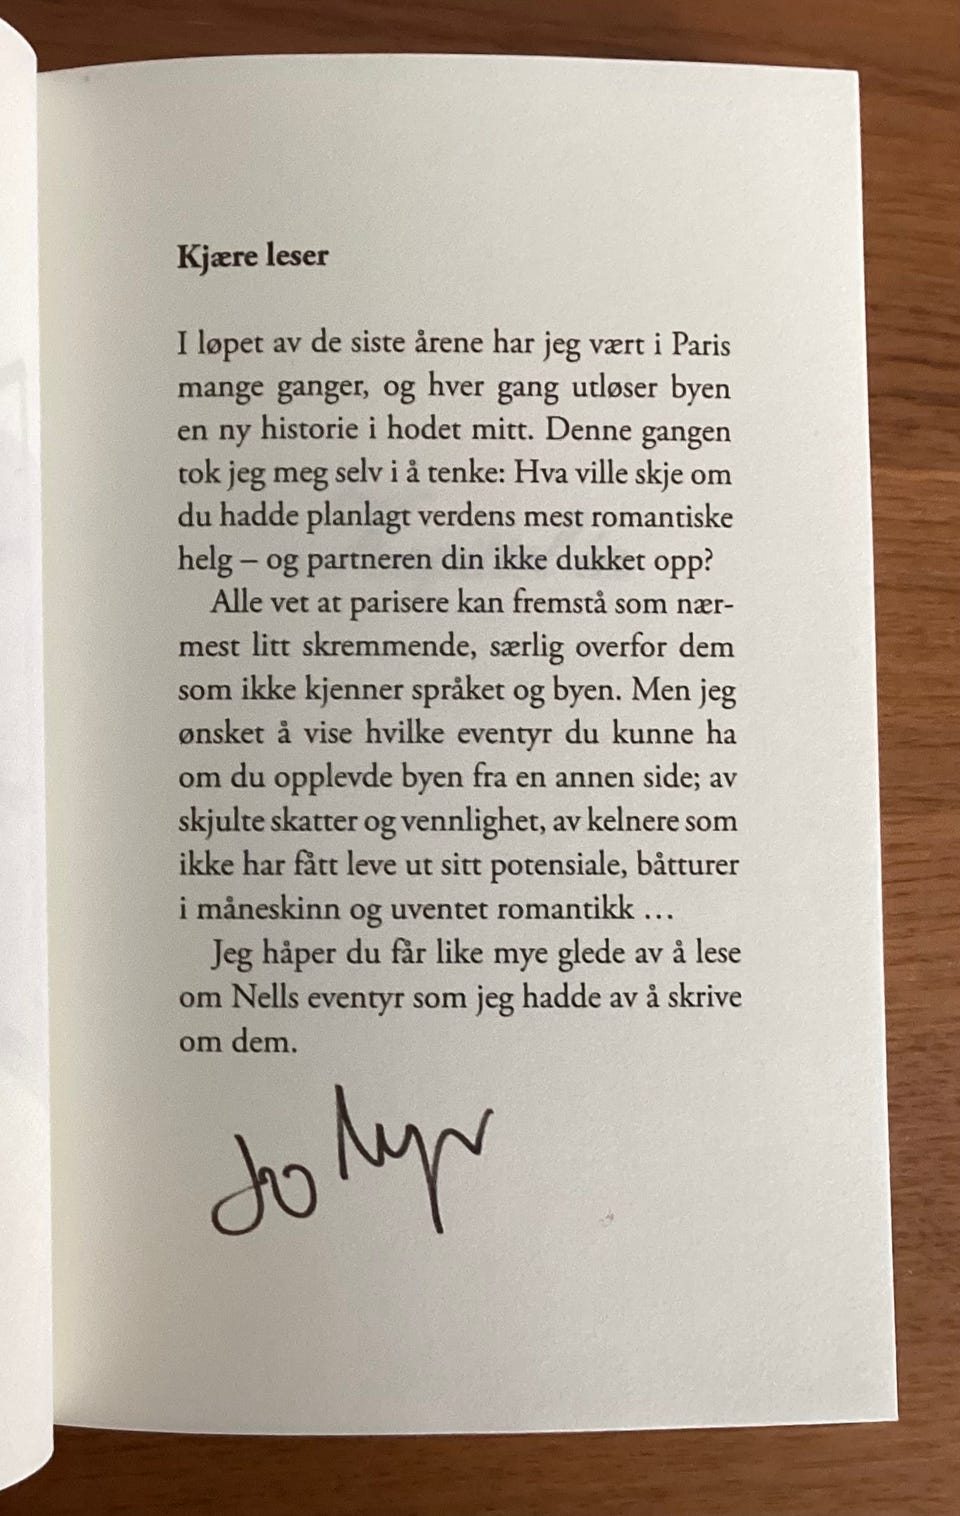 Kjære leser
I løpet av de siste årene har jeg vært i Paris
mange ganger, og hver gang utløser byen
en ny historie i hodet mitt. Denne gangen
tok jeg meg selv i å tenke: Hva ville skje om
du hadde planlagt verdens mest romantiske
helg – og partneren din ikke dukket opp?
Alle vet at parisere kan fremstå som nær-
mest litt skremmende, særlig overfor dem
som ikke kjenner språket og byen. Men jeg
ønsket å vise hvilke eventyr du kunne ha
om du opplevde byen fra en annen side; av
skjulte skatter og vennlighet, av kelnere som
ikke har fått leve ut sitt potensiale, båtturer
i måneskinn og uventet romantikk …
Jeg håper du får like mye glede av å lese
om Nells eventyr som jeg hadde av å skrive
om dem.
Jo